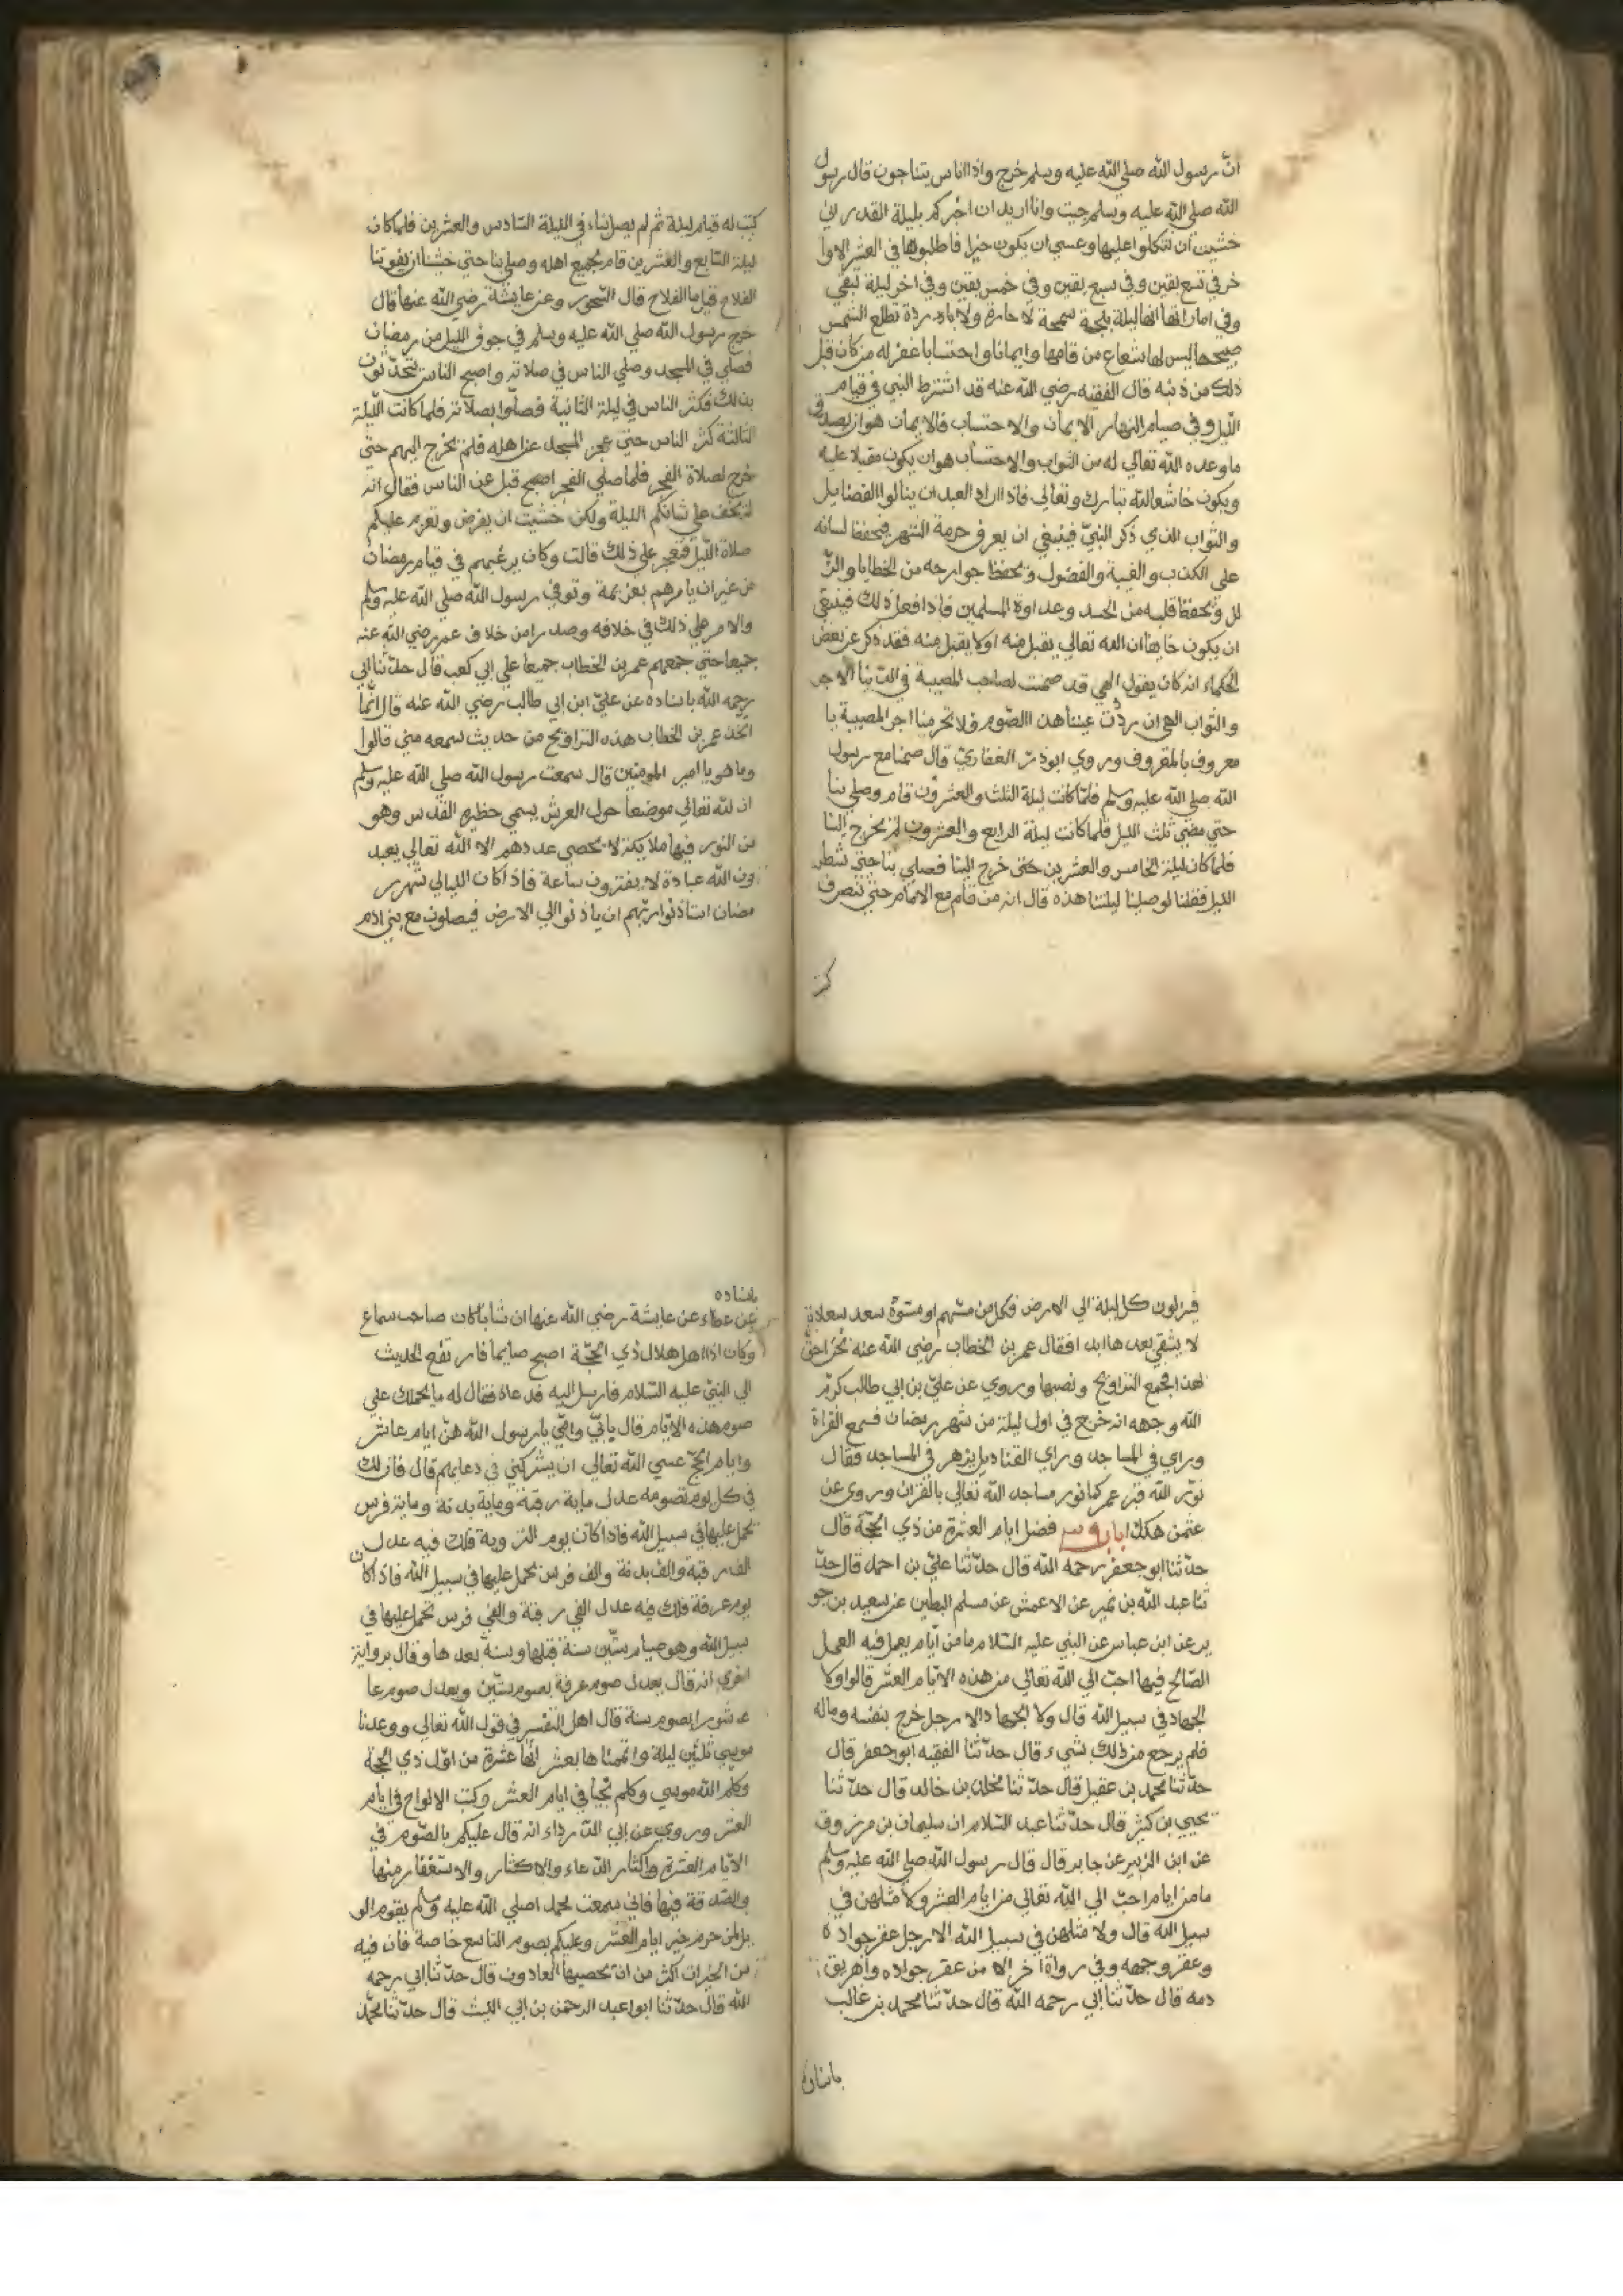 انّ رسول الله صلي الله عليه وسلم خرج واذا الناس يتناجون قال رسول
الله صلي الله عليه وسلم جيت وانا اريد ان اخبركم بليلة القدر اني
خشيت ان تتكلوا عليها وعسي ان يكون خيرا فاطلبوها في العشر الاوا
خر في تسع بقين وفي سبع بقين وفي خمس بقين وفي اخر ليلة تبقي
وفي اماراتها انها ليلة بلجة سمحة لا حارة ولا باردة تطلع الشمس
صبيحها ليس لها شعاع من قامها وايمانا واحتسابا غفر له من كان قبل
ذلك من ذنبه قال الفقيه رضي الله عنه قد اشترط النبي في قيام
الليل وفي صيام النهار الايمان والاحتساب فالايمان هو ان يصدق
ما وعده الله تعالي له من الثواب والاحتساب هو ان يكون مقبلا عليه
ويكون خاشعا لله تبارك وتعالي فاذا اراد العبد ان ينالوا الفضايل
والثواب الذي ذكر النبيّ فينبغي ان يعرف حرمة الشهر فيحفظ لسانه
علي الكذب والغيبة والفضول ويحفظ جوارحه من الخطايا والزّ
لل ويحفظ قلبه من الحسد وعداوة المسلمين فاذا فعل ذلك فينبغي
ان يكون خايفا ان الله تعالي يقبل منه اولا يقبل منه فقد ذكر عن بعض
الحكماء انه كان يقول الهي قد ضمنت لصاحب المصيبة في الدّنيا الاجر
والثواب الهي ان رددت عيننا هذا الصّوم فلا تحرمنا اجر المصيبة يا
معروف بالمعروف وروي ابوذر الغفاريّ قال صمنا مع رسول
الله صلي الله عليه وسلم فلمّا كانت ليلة الثلث والعشرون قام وصلي بنا
حتي مضي ثلث الليل فلما كانت ليلة الرابع والعشرون لم يخرج الينا
فلما كان ليلة الخامس والعشرين حتي خرج الينا فصلي بنا حتي شطر
الليل فقلنا لو صلينا ليلتنا هذه قال انه من قام مع الامام حتي تنصرف
كتب
كتب له قيام ليلة ثم لم يصل بناء في الليلة السّادس والعشرين فلما كان
ليلة السّابع والعشرين قام بجميع اهله وصلي بنا حتي خشينا ان يفوتنا
الفلاح قيل ما الفلاح قال السّحور وعن عايشة رضي الله عنها قال
خرج رسول الله صلي الله عليه وسلم في جوف الليل من رمضان
فصلي في المسجد وصلي الناس في صلاته واصبح الناس يتحدّثون
بذلك فكثر الناس في ليلة الثانية فصلّوا بصلاته فلما كانت الليلة
الثالثة كثر الناس حتي عجز المسجد عن اهله فلم يخرج اليهم حتي
خرج لصلاة الفجر فلما صلي الفجر اصبح قبل عن الناس فقال انه
لم يخف علي شانكم الليلة ولكن خشيت ان يفرض وتعزم عليكم
صلاة الليل فتعجز علي ذلك قالت وكان يرغبهم في قيام رمضان
من غير ان يامرهم بعزيمة وتوفي رسول الله صلي الله عليه وسلم
والامر علي ذلك في خلافه وصدرا من خلاف عمر رضي الله عنه
جميعا حتي جمعهم عمر بن الخطاب جميعا علي ابي كعب قال حدّثنا ابي
رحمه الله باسناده عن عليّ ابن ابي طالب رضي الله عنه قال انّما
اتخذ عمر بن الخطاب هذه التراويح من حديث سمعه مني قالوا
وما هو يا امير المومنين قال سمعت رسول الله صلي الله عليه وسلم
ان لله تعالي موضعا حول العرش يسمي حظيرة القدس وهو
من النور فيها ملايكة لا يحصي عددهم الا الله تعالي يعبد
ون الله عبادة لا يفترون ساعة فاذا كان الليالي شهر ر
مضان استاذنوا ربّهم ان ياذنوا الي الارض فيصلون مع بني ادم
فينزلون كل ليلة الي الارض فكل من مسّهم او مسّوه سعد سعادة
لا يشقي بعدها ابدا فقال عمر بن الخطاب رضي الله عنه نحن احقّ
لهذا فجمع التراويح ونصبها وروي عن عليّ بن ابي طالب كرّم
الله وجهه انه خرج في اول ليلة من شهر رمضان فسمع القراة
وراي في المساجد وراي القناديل يزهر في المساجد فقال
نوّر الله قبر عمر كما نور مساجد الله تعالي بالقران وروي عن
عثمن هكذا باب فضل ايام العشرة من ذي الحجّة قال
حدّثنا ابو جعفر رحمه الله قال حدّثنا عليّ بن احمد قال حدّ
ثنا عبد الله بن نمير عن الاعمش عن مسلم البطين عن سعيد بن جو
ير عن ابن عباس عن النبي عليه السّلام ما من ايّام يعمل فيه العمل
الصّالح فيها احبّ الي الله تعالي من هذه الايّام العشر قالوا ولا
الجهاد في سبيل الله قال ولا الجهاد الا رجل خرج بنفسه وماله
فلم يرجع من ذلك بشيء قال حدّثنا الفقيه ابو جعفر قال
حدّثنا محمد بن عقيل قال حدّثنا مخلد بن خالد قال حدّثنا
يحيي بن كثير قال حدّثنا عبد السّلام ان سليمان بن مرزوق
عن ابن الزبير عن جابر قال قال رسول الله صلي الله عليه وسلم
ما من ايام احبّ الي الله تعالي من ايام العشر ولا مثلهن في
سبيل الله قال ولا مثلهن في سبيل الله الا رجل عقر جواده
وعفر وجهه وفي رواة اخر الا من عقر جواده واهريق
دمه قال حدّثنا ابي رحمه الله قال حدّثنا محمد بن غالب
باسناده
عن عطاء عن عايشة رضي الله عنها ان شابا كان صاحب سماع
وكان اذا اهل هلال ذي الحجّة اصبح صايما فارتفع الحديث
الي النبيّ عليه السّلام فارسل اليه فدعاه فقال له ما يحملك علي
صوم هذه الايّام قال بابّي وامّي يا رسول الله هنّ ايام عاشر
وايام الحجّ عسي الله تعالي ان يشركني في دعايهم قال فان لك
في كل يوم تصومه عدل ماية رقبة وماية بدنة وماية فرس
تحمل عليها في سبيل الله فاذا كان يوم التروية فلك فيه عدل
الف رقبة والف بدنة والف فرس تحمل عليها في سبيل الله فاذا كان
يوم عرفة فلك فيه عدل الفي رقبة والفي فرس تحمل عليها في
سبيل الله وهو صيام سنتين سنة قبلها وسنة بعدها وقال برواية
اخري انه قال يعدل صوم عرفة بصوم سنتين ويعدل صوم عا
شورا بصوم سنة قال اهل التفسير في قول الله تعالي ووعدنا
موسي ثلثين ليلة واتممناها بعشر انّها عشرة من اوّل ذي الحجّة
وكلم الله موسي وكلم نجيا في ايام العشر وكتب الالواح في ايام
العشر وروي عن ابي الدّرداء انه قال عليكم بالصّوم في
الايّام العشرة واكثار الدّعاء والاكثار والاستغفار منها
والصّدقة فيها فاني سمعت محمد اصلي الله عليه وسلم يقوم الو
يل لمن حرم خير ايام العشر وعليكم بصوم التاسع خاصة فان فيه
من الخيرات اكثر من ان يحصيها العادون قال حدّثنا ابي رحمه
الله قال حدّثنا ابو عبد الرحمن بن ابي الليث قال حدّثنا محمّد